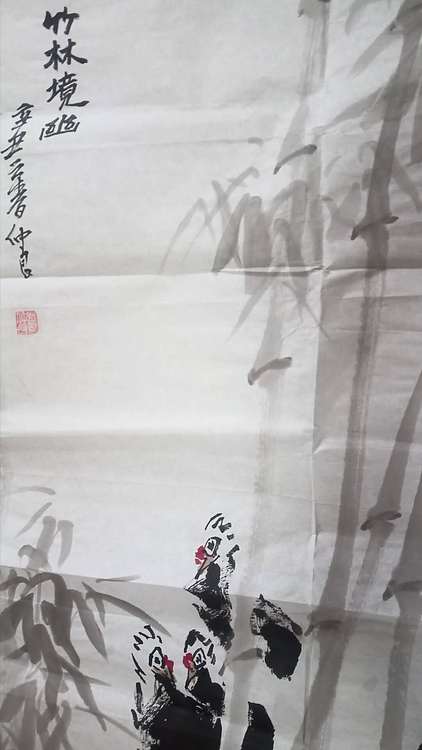 竹林境幽
辛丑之春仲良